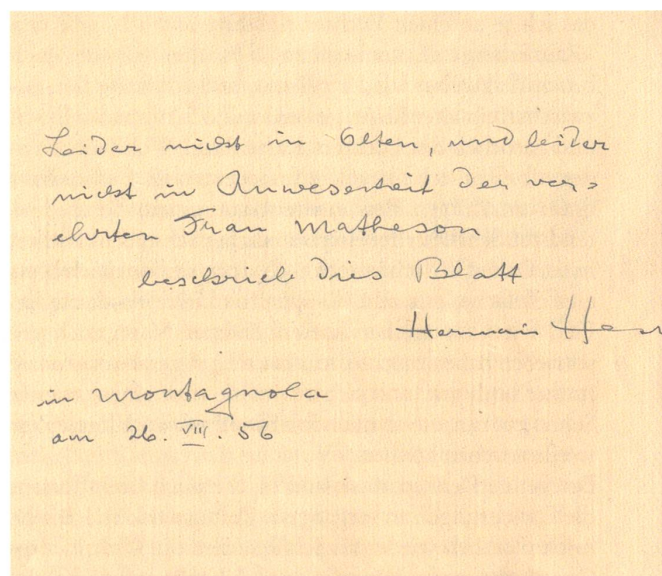 Leider nicht in Olten, und leider
nicht in Anwesenheit der ver=
ehrten Frau Matheson
beschrieb dies Blatt
Hermann Hes
in Montagnola
am 26. VIII. 56